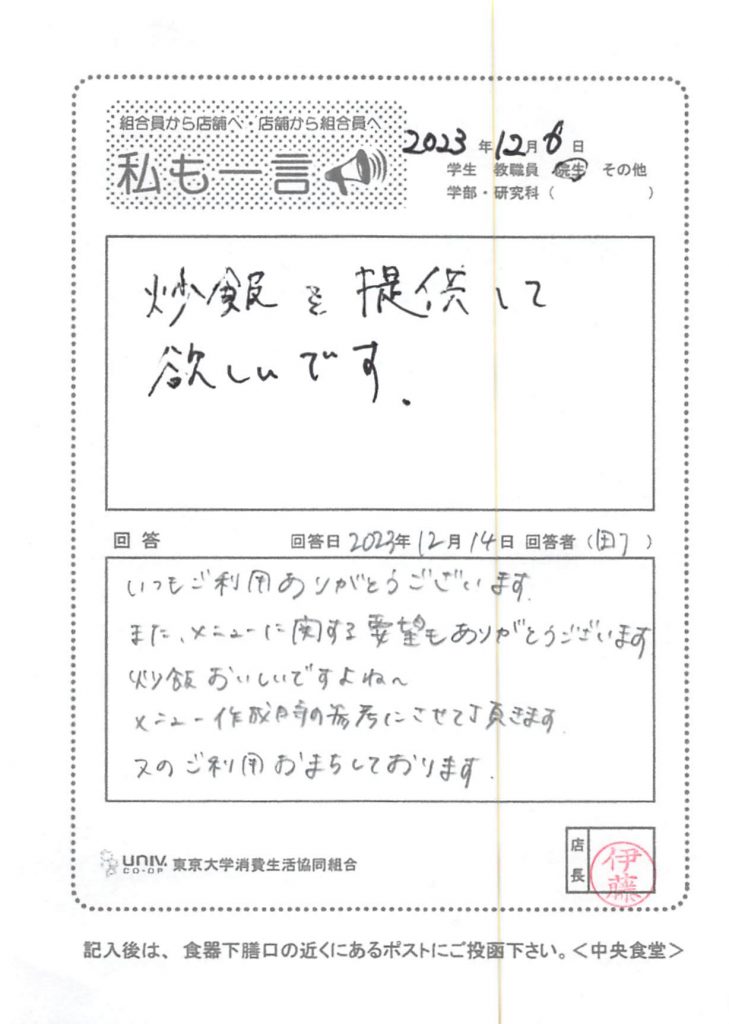 組合員から店舗へ・店舗から組合員へ
私も一言
2023年12月6日
学生 教職員 院生 その他
学部・研究科（ ）
炒飯を提供して
欲しいです.
回答 回答日 2023年12月14日 回答者（ ）
いつもご利用ありがとうございます.
また、メニューに関する要望もありがとうございます
炒飯おいしいですよね〜
メニュー作成時の参考にさせて頂きます.
又のご利用おまちしております.
UNIV. CO-OP 東京大学消費生活協同組合
店長 伊藤
記入後は、食器下膳口の近くにあるポストにご投函下さい。＜中央食堂＞